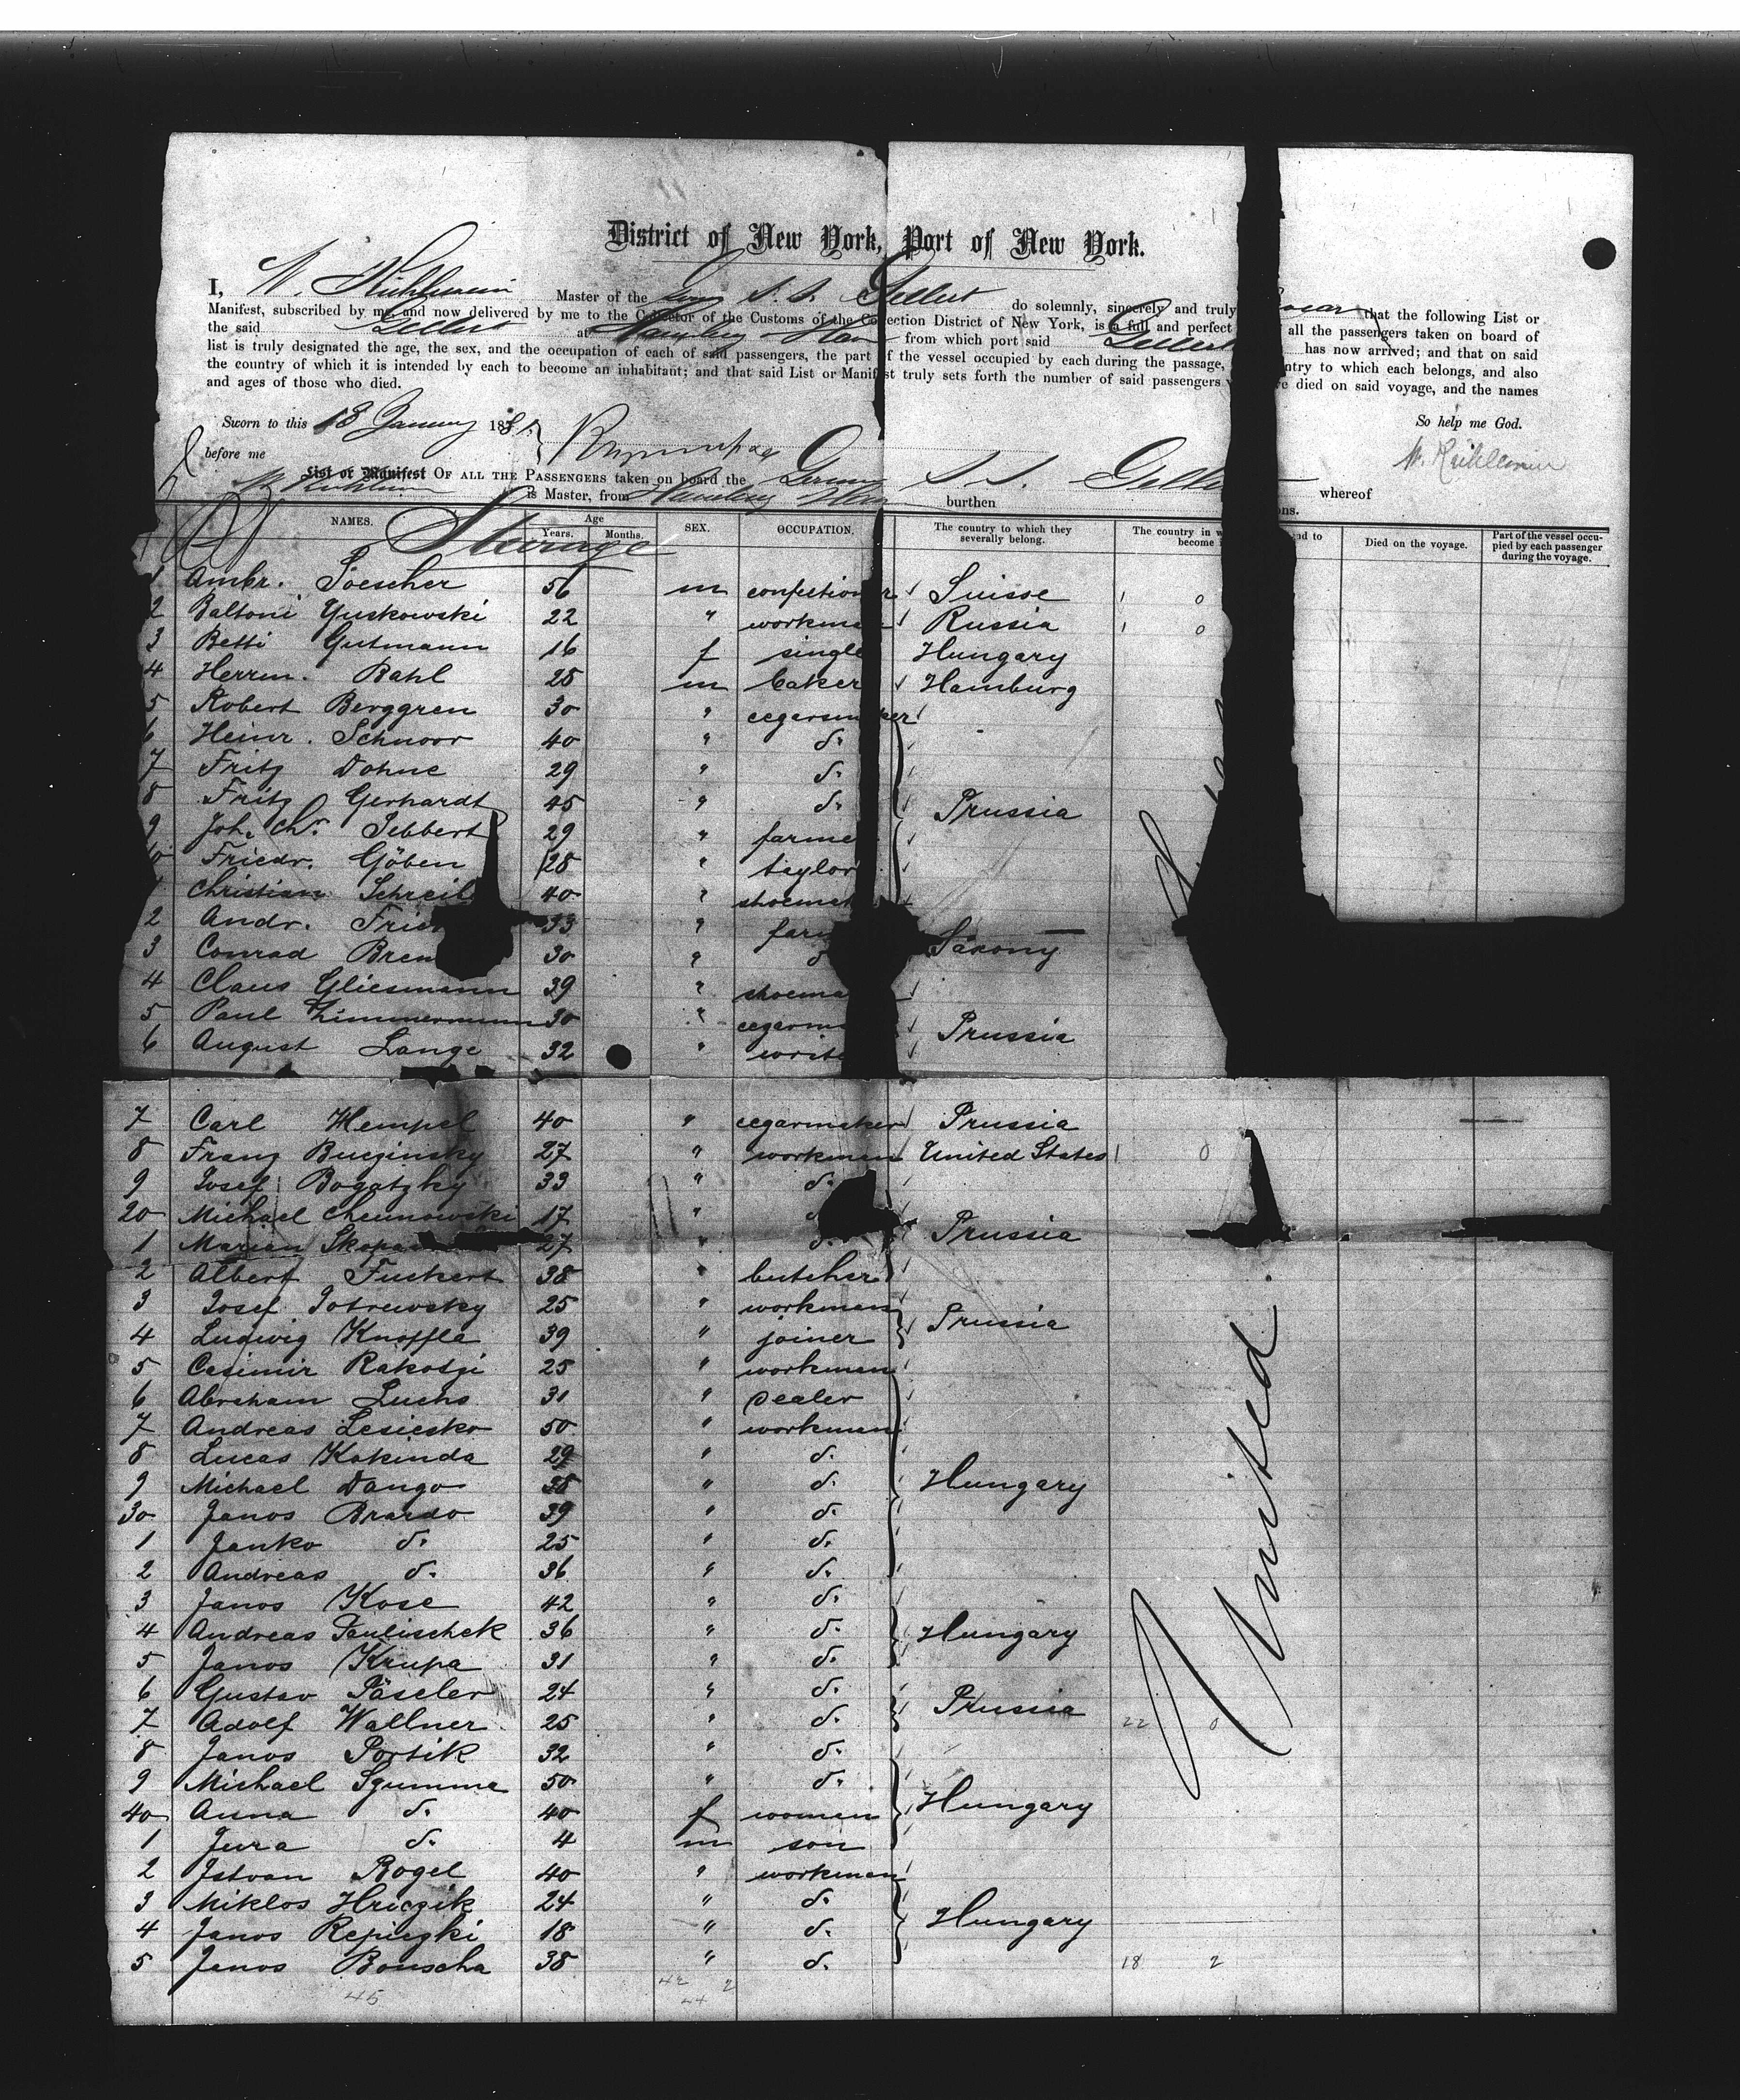 District of New York, Port of New York.
I, W. Kühlewein Master of the Germ S. S. Gellert do solemnly, sincerely and truly swear that the following List or
Manifest, subscribed by me, and now delivered by me to the Collector of the Customs of the Collection District of New York, is a full and perfect all the passengers taken on board of
the said Gellert at Hamburg Havre from which port said Gellert has now arrived; and that on said
list is truly designated the age, the sex, and the occupation of each of said passengers, the part of the vessel occupied by each during the passage, country to which each belongs, and also
the country of which it is intended by each to become an inhabitant; and that said List or Manifest truly sets forth the number of said passengers died on said voyage, and the names
and ages of those who died.
So help me God.
Sworn to this 18 January 1881
before me
W. Kühlewein
List or Manifest OF ALL THE PASSENGERS taken on board the German S. S. Gellert whereof
is Master, from Hamburg Havre burthen
NAMES. Age Years. Months. SEX. OCCUPATION. The country to which they severally belong. The country in become Died on the voyage. Part of the vessel occupied by each passenger during the voyage.
Steerage
1 Ambr. 56 m confectioner Suisse 1 0
2 Baltoni Yuskowski 22 " workman Russia 1 0
3 Betti Gutmann 16 f single Hungary
4 Herrm. Bahl 28 m baker Hamburg
5 Robert Berggren 30 " cegarsmaker
6 Heinr. Schnoor 40 " do
7 Fritz Dohne 29 " do
8 Fritz Gerhardt 45 " do Prussia
9 Joh. Chr. Tebbert 29 " farmer
10 Friedr. Göben 28 " taylor
Christian Schreib 40 " shoemak
2 Andr. 33 " farm
3 Conrad Brem 30 " Saxony
4 Claus Gliesmann 39 " shoema
5 Paul Zimmermann 30 " cegarm Prussia
6 August Lange 32 " write
7 Carl Hempel 40 " cegarmaker Prussia
8 Franz Buczinsky 27 " workman United States 1 0
9 Josef Bogatzky 33 " do
20 Michael Cheunowski 17 "
1 Marian 27 " do Prussia
2 Albert Fuckert 38 " butcher
3 Josef Potrewsky 25 " workman
4 Ludwig Knoffla 39 " joiner Prussia
5 Casimir Rakodzi 25 " workman
6 Abraham Luchs 31 " dealer
7 Andreas Lesiesko 50 " workman
8 Lucas Kakinda 29 " do
9 Michael Dango 38 " do Hungary
30 Janos Brando 39 " do
1 Janko do 25 " do
2 Andreas do 36 " do
3 Janos Kose 42 " do
4 Andreas Paulischek 36 " do Hungary
5 Janos Krupa 31 " do
6 Gustav Päseler 24 " do Prussia
7 Adolf Wallner 25 " do 22 0
8 Janos Portik 32 " do
9 Michael Szumma 50 " do
40 Anna do 40 f women Hungary
1 Jura do 4 m son
2 Istvan Rogel 40 " workman
3 Miklos Hriczik 24 " do
4 Janos Repiczki 18 " do Hungary
5 Janos Bouscha 38 " do 18 2
45
42 2
44
United.